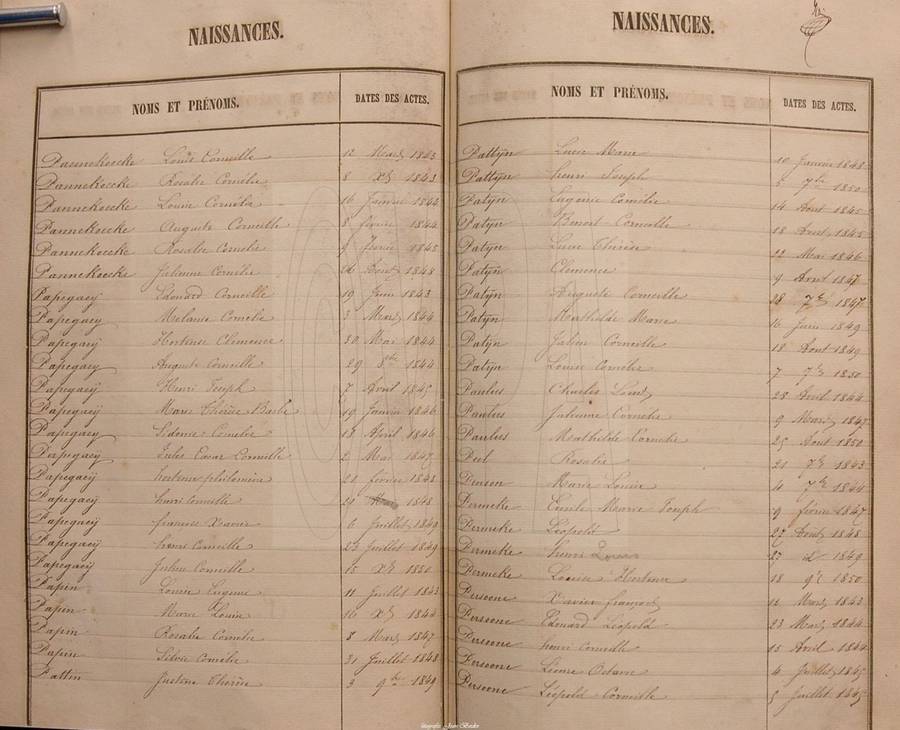 NAISSANCES.
NOMS ET PRÉNOMS. DATES DES ACTES.
Dannekoecke Louis Corneille 12 Mars 1843
Dannekoecke Rosalie Cornélie 8 Xb 1843
Dannekoecke Louise Cornélie 16 Janvier 1844
Dannekoecke Auguste Corneille 8 février 1844
Dannekoecke Rosalie Cornelie 9 février 1845
Dannekoecke Julienne Cornélie 26 Aout 1848
Papegaey Edouard Corneille 19 Juin 1843
Papegaey Melanie Cornelie 3 Mars 1844
Papegaey Hortense Clemence 30 Mai 1844
Papegaey Auguste Corneille 29 8bre 1844
Papegaey Henri Joseph 7 Avril 1845
Papegaey Marie Thérèse Barbe 19 Janvier 1846
Papegaey Sidonie Cornelie 18 April 1846
Papegaey Jules Cesar Corneille 2 Mai 1847
Papegaey hortense philomine 21 février 1848
Papegaey henri Corneille 29 1848
Papegaey francois Xavier 6 Juillet 1849
Papegaey henri Corneille 23 Juillet 1849
Papegaey Julien Corneille 15 Xb 1850
Papin Louise Eugenie 11 Juillet 1843
Papin Marie Louise 16 Xb 1844
Papin Rosalie Cornelie 8 Mars 1847
Papin Silvie Cornélie 31 Juillet 1848
Pattin Justine Thérèse 3 9bre 1849
NAISSANCES.
NOMS ET PRÉNOMS. DATES DES ACTES.
Pattyn Lucie Marie 10 Janvier 1848
Pattyn henri Joseph 5 7bre 1850
Patyn Eugenie Cornélie 14 Aout 1845
Patyn Benoit Corneille 18 Aout 1845
Patyn Lucie Thérèse 22 Mai 1846
Patyn Clemence 9 Avril 1847
Patyn Auguste Corneille 28 7b 1847
Patyn Mathilde Marie 16 Juin 1849
Patyn Julien Corneille 18 Aout 1849
Patyn Louise Cornélie 7 7b 1850
Paulus Charles Louis 28 Avril 1844
Paulus Julienne Cornelie 9 Mars 1847
Paulus Mathilde Cornelie 25 Aout 1850
Peel Rosalie 21 7b 1843
Marie Louise 4 7b 1844
Permeke Emile Marie Joseph 9 février 1847
Permeke Léopold 27 Aout 1848
Permeke henri Louis 27 id 1849
Permeke Louise Hortense 18 9b 1850
Persoone Xavier françois 12 Mars 1843
Persoone Edouard Léopold 23 Mars 1844
Persoone henri Corneille 15 Avril 1844
Persoone Léonie Octavie 4 Juillet 1845
Persoone Léopold Corneille 5 Juillet 1845